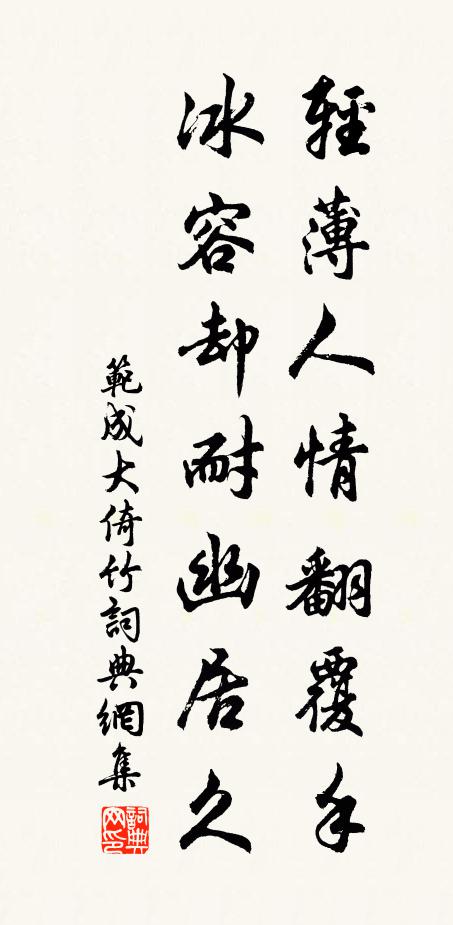 輕薄人情翻覆手
冰容却耐幽居久
範成大倚竹詞典網集
詞典网印